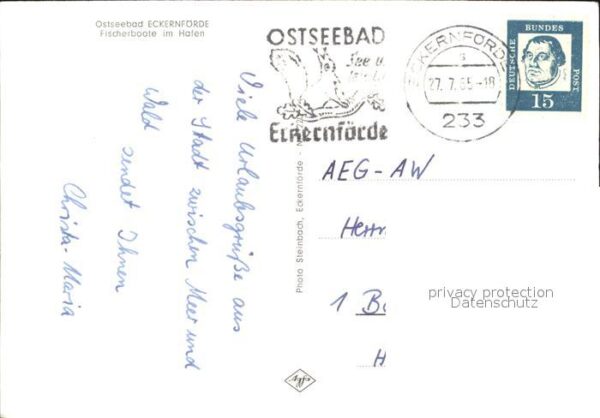 Ostseebad ECKERNFÖRDE
Fischerboote im Hafen
Viele Urlaubsgrüße aus
der Stadt zwischen Meer und
Wald sendet Ihnen
Christa-Maria
OSTSEEBAD
See u.
Eckernförde
ECKERNFÖRDE
27.7.65-18
233
DEUTSCHE
BUNDES
POST
15
Photo Steinbach, Eckernförde
AEG-AW
Herrn
1 B
H
Agfa
privacy protection
Datenschutz